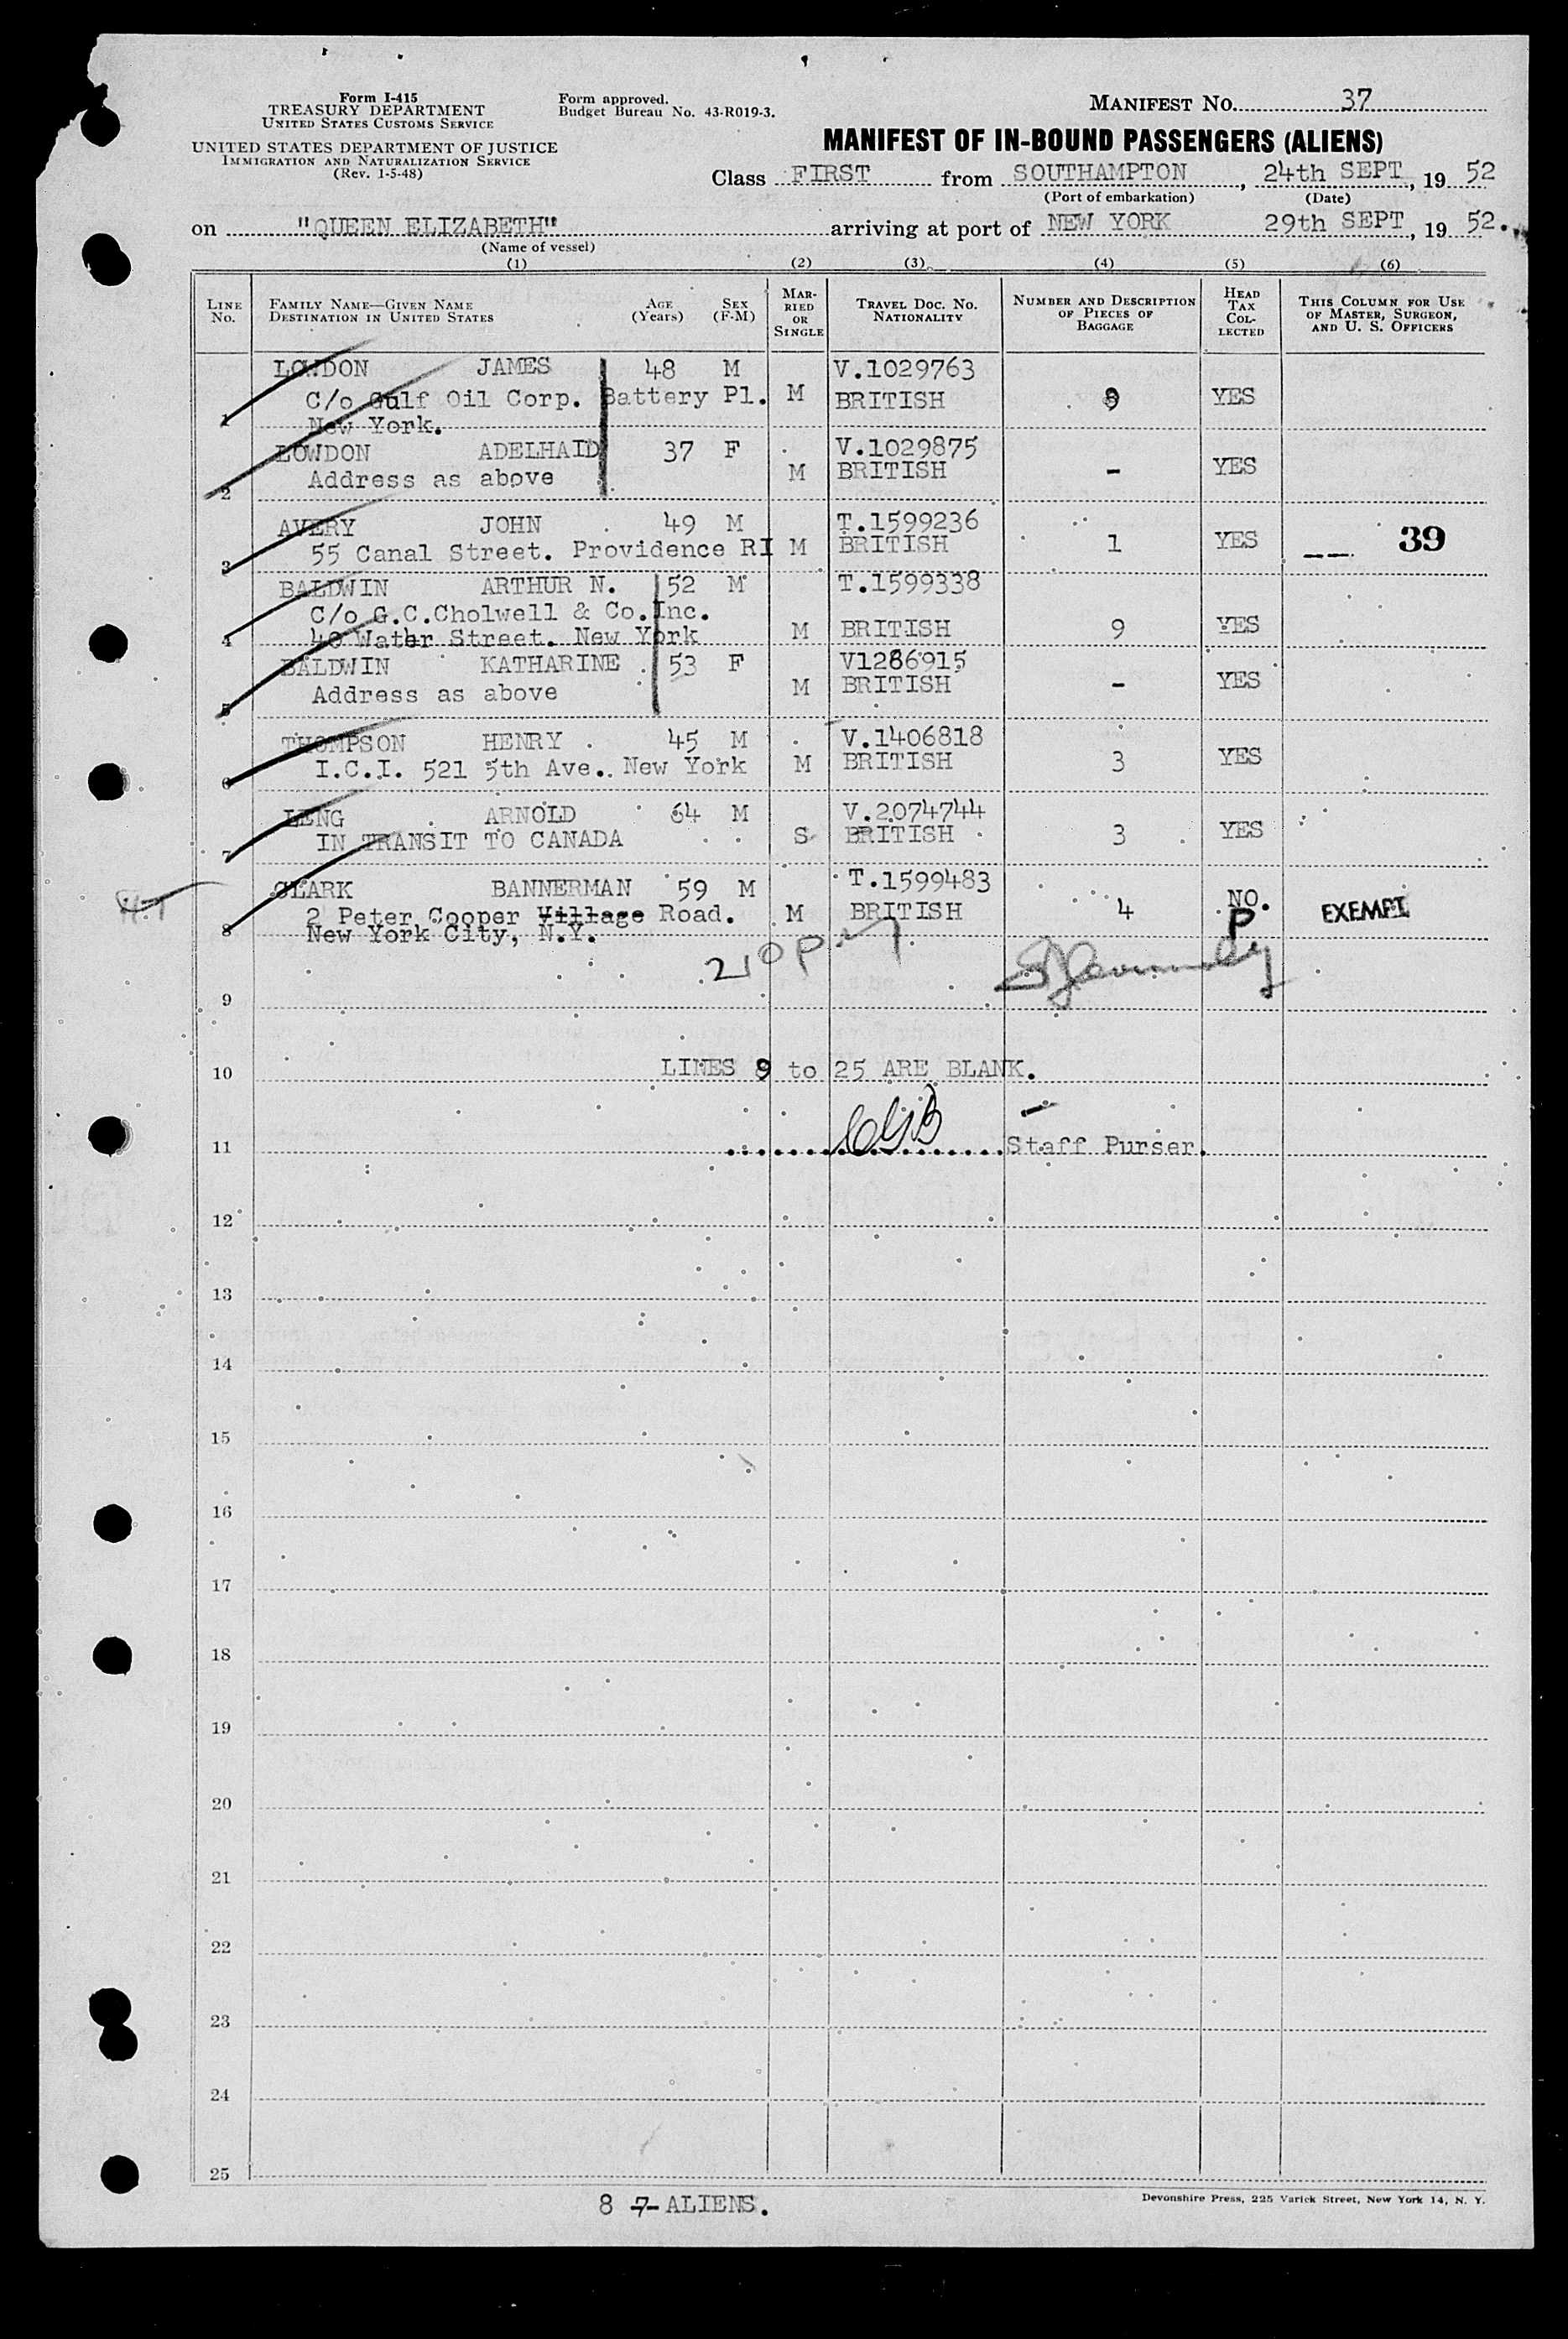 Form I-415
TREASURY DEPARTMENT
UNITED STATES CUSTOMS SERVICE
UNITED STATES DEPARTMENT OF JUSTICE
IMMIGRATION AND NATURALIZATION SERVICE
(Rev. 1-5-48)
Form approved.
Budget Bureau No. 43-R019-3.
MANIFEST NO. 37
MANIFEST OF IN-BOUND PASSENGERS (ALIENS)
Class FIRST from SOUTHAMPTON, 24th SEPT, 19 52
(Port of embarkation) (Date)
on "QUEEN ELIZABETH" arriving at port of NEW YORK 29th SEPT, 19 52.
(Name of vessel)
(1) (2) (3) (4) (5) (6)
LINE No. FAMILY NAME—GIVEN NAME DESTINATION IN UNITED STATES AGE (Years) SEX (F-M) MARRIED OR SINGLE TRAVEL DOC. NO. NATIONALITY NUMBER AND DESCRIPTION OF PIECES OF BAGGAGE HEAD TAX COLLECTED THIS COLUMN FOR USE OF MASTER, SURGEON, AND U. S. OFFICERS
LOWDON JAMES 48 M V.1029763
C/o Gulf Oil Corp. Battery Pl. M BRITISH 9 YES
1 New York.
LOWDON ADELHAID 37 F V.1029875
2 Address as above M BRITISH - YES
AVERY JOHN 49 M T.1599236
3 55 Canal Street. Providence RI M BRITISH 1 YES -- 39
BALDWIN ARTHUR N. 52 M T.1599338
C/o G.C.Cholwell & Co.Inc.
4 40 Water Street. New York M BRITISH 9 YES
BALDWIN KATHARINE 53 F V1286915
5 Address as above M BRITISH - YES
THOMPSON HENRY 45 M V.1406818
6 I.C.I. 521 5th Ave.. New York M BRITISH 3 YES
LENG ARNOLD 64 M V.2074744
7 IN TRANSIT TO CANADA S BRITISH 3 YES
CLARK BANNERMAN 59 M T.1599483
2 Peter Cooper Village Road. M BRITISH 4 NO. EXEMPT
8 New York City, N.Y. P
210 P
9
10 LINES 9 to 25 ARE BLANK.
11 Staff Purser.
12
13
14
15
16
17
18
19
20
21
22
23
24
25
8 7 ALIENS.
Devonshire Press, 225 Varick Street, New York 14, N. Y.